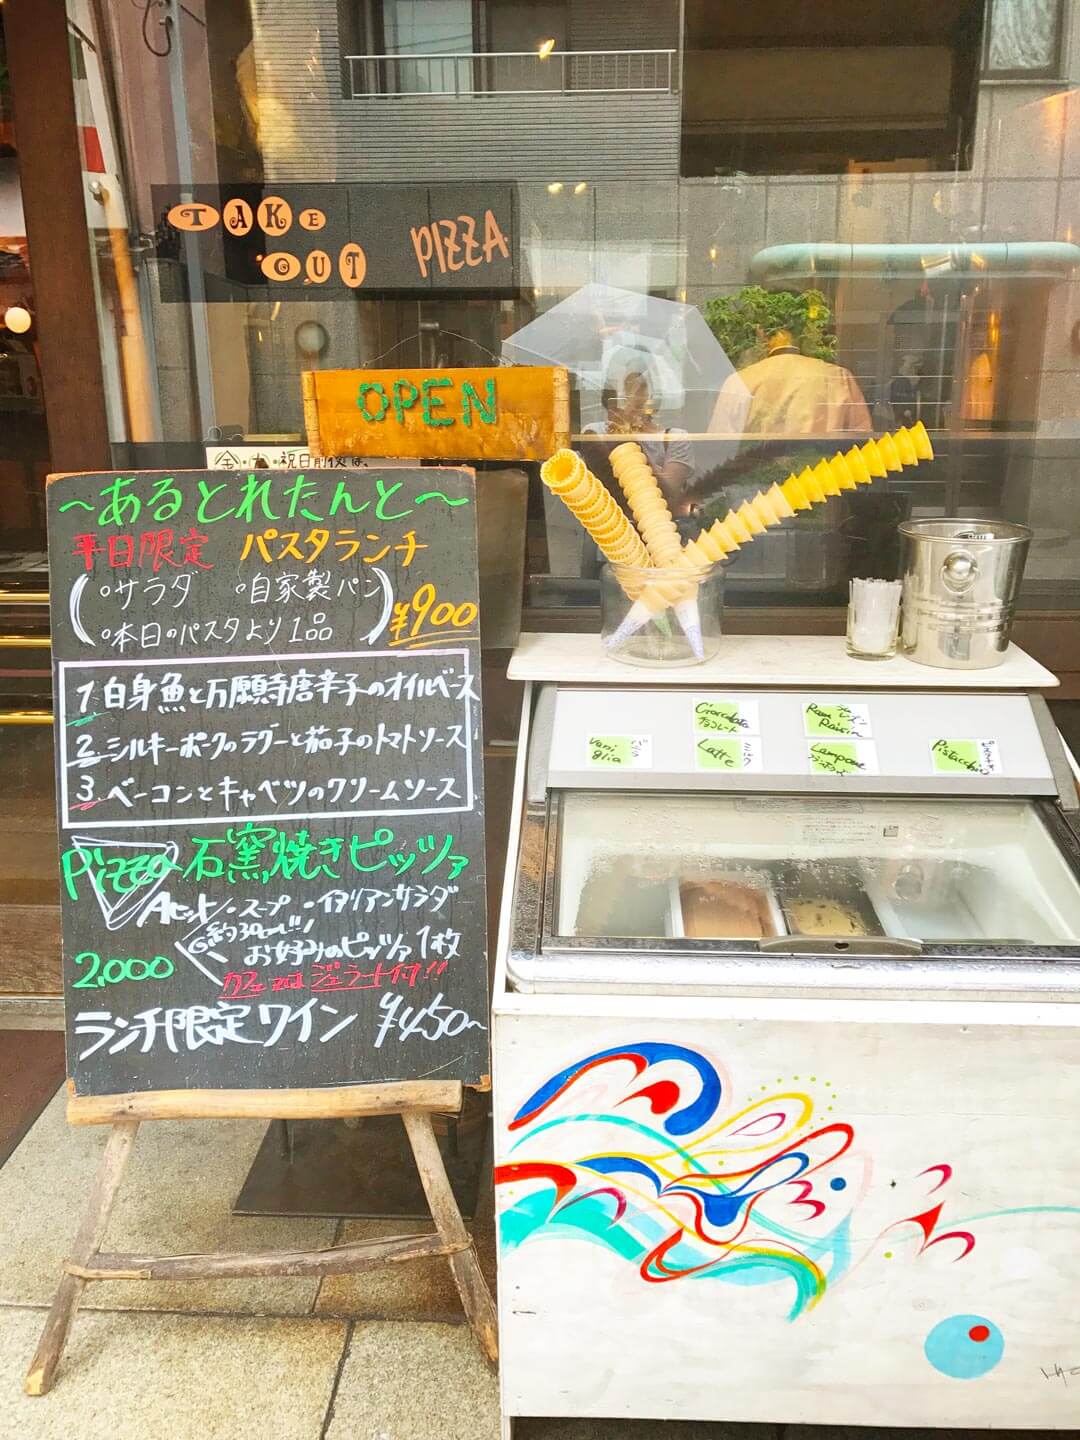 TAKE
OUT
PIZZA
OPEN
祝日前後は、
～あるとれたんと～
平日限定 パスタランチ
(○サラダ ○自家製パン
○本日のパスタより1品) ¥900
1. 白身魚と万願寺唐辛子のオイルベース
2. シルキーポークのラグーと茄子のトマトソース
3. ベーコンとキャベツのクリームソース
Pizza 石窯焼きピッツァ
Aセット/・スープ ・イタリアンサラダ
約30cm!!
お好みのピッツァ1枚
2,000
カフェ又はジェラート付!!
ランチ限定ワイン ¥450~
Cioccolato
チョコレート
Rum
Raisin
Vani
glia
バニラ
Latte
ミルク
Lampone
Pistacchio
ピスタチオ